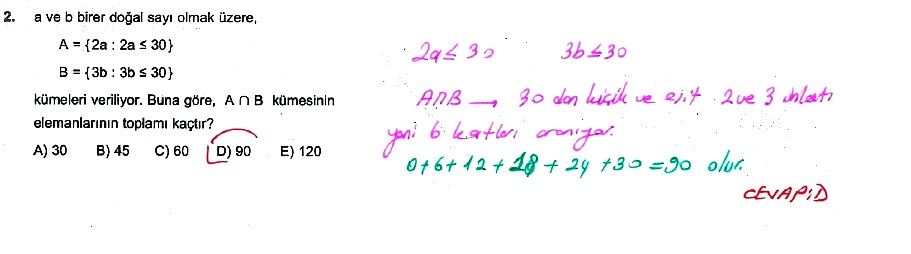 2. a ve b birer doğal sayı olmak üzere,
A = {2a : 2a ≤ 30}
B = {3b : 3b ≤ 30}
kümeleri veriliyor. Buna göre, A ∩ B kümesinin
elemanlarının toplamı kaçtır?
A) 30 B) 45 C) 60 D) 90 E) 120
2a ≤ 30 3b ≤ 30
A∩B → 30 dan küçük ve eşit 2 ve 3 ün katı
yani 6 katları aranıyor.
0+6+12+18+24+30=90 olur.
CEVAP:D